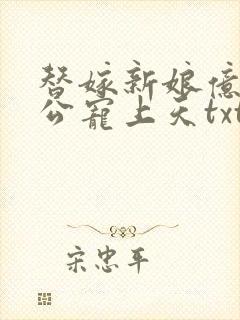 替嫁新娘億
公寵上天txt
宋忠平